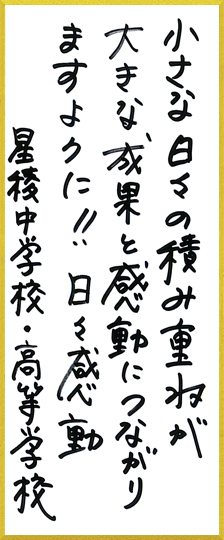 小さな日々の積み重ねが
大きな成果と感動につながり
ますように!! 日々感動
星稜中学校・高等学校